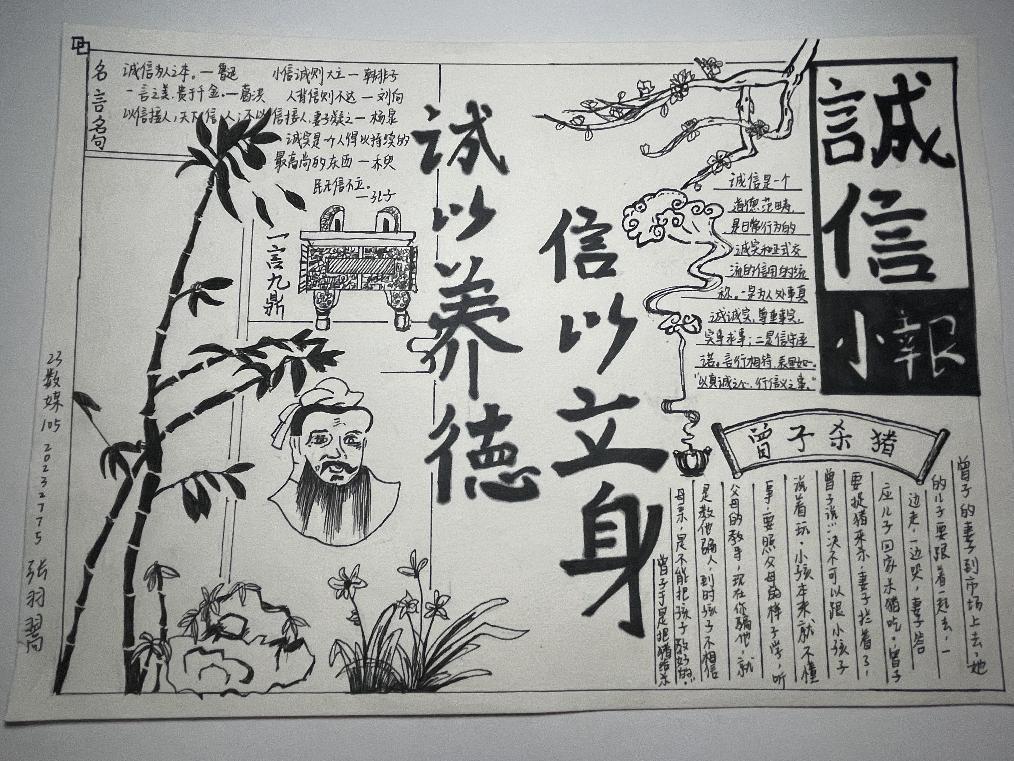 誠信
小報
名言名句
诚信为人之本。—鲁迅
小信诚则大立—韩非子
一言之美,贵于千金。—葛洪
人背信则不达—刘向
以信接人,天下信人;不以信接人,妻子疑之—杨泉
诚实是一个人得以持续的
最高尚的东西—
民无信不立。
—孔子
一言九鼎
诚以养德
信以立身
诚信是一个
道德范畴,
是日常行为的
诚实和正式交
流的信用的统
称。一是为人处事真
诚诚实,尊重事实,
实事求事;二是信守承
诺。言行相符,表里如一。
"以真诚之心,行信义之事。"
曾子杀猪
曾子的妻子到市场上去,她
的儿子要跟着一起去,一
边走,一边哭,妻子答
应儿子回家杀猪吃。曾子
要捉猪来杀,妻子拦着了,
曾子说:"决不可以跟小孩子
说着玩。小孩本来就不懂
事,要照父母的样子学,听
父母的教导,现在你骗他,就
是教他骗人,到时孩子不相信
母亲,是不能把孩子教好的。
曾子于是把猪给杀
23数媒105 20232775 张羽翯